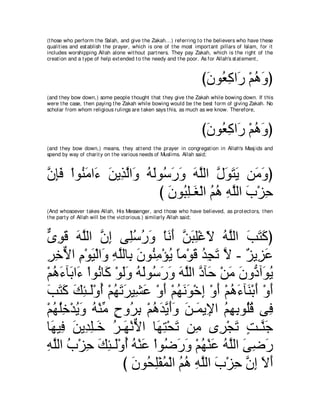 (those who perform the Salah, and give the Zakah...) referring to the believers who have these
qualities and establish the prayer, which is one of the most important pillars of Islam, for it
includes worshipping Allah alone without partners. They pay Zakah, which is the right of the
creation and a type of help extended to the needy and the poor. As for Allah's statement,
(وَهُمْ رَاكِعُونَ)
(and they bow down,) some people thought that they give the Zakah while bowing down. If this
were the case, then paying the Zakah while bowing would be the best form of giving Zakah. No
scholar from whom religious rulings are taken says this, as much as we know. Therefore,
(وَهُمْ رَاكِعُونَ)
(and they bow down,) means, they attend the prayer in congregation in Allah's Masjids and
spend by way of charity on the various needs of Muslims. Allah said;
(وَمَن يَتَوَلَّ اللَّهَ وَرَسُولَهُ وَالَّذِينَ ءَامَنُواْ فَإِنَّ
حِزْبَ اللَّهِ هُمُ الْغَـلِبُونَ )
(And whosoever takes Allah, His Messenger, and those who have believed, as protectors, then
the party of Allah will be the victorious.) similarly Allah said;
(كَتَبَ اللَّهُ لاّغْلِبَنَّ أَنَاْ وَرُسُلِى إِنَّ اللَّهَ قَوِىٌّ
عَزِيزٌ - لاَّ تَجِدُ قَوْماً يُؤْمِنُونَ بِاللَّهِ وَالْيَوْمِ الاٌّخِرِ
يُوَآدُّونَ مَنْ حَآدَّ اللَّهَ وَرَسُولَهُ وَلَوْ كَانُواْ ءَابَآءَهُمْ
أَوْ أَبْنَآءَهُمْ أَوْ إِخْوَنَهُمْ أَوْ عَشِيرَتَهُمْ أُوْلَـئِكَ كَتَبَ
فِى قُلُوبِهِمُ الإِيمَـنَ وَأَيَّدَهُمْ بِرُوحٍ مِّنْهُ وَيُدْخِلُهُمْ
جَنَّـتٍ تَجْرِى مِن تَحْتِهَا الاٌّنْهَـرُ خَـلِدِينَ فِيهَا
رَضِىَ اللَّهُ عَنْهُمْ وَرَضُواْ عَنْهُ أُوْلَـئِكَ حِزْبُ اللَّهِ
أَلاَ إِنَّ حِزْبَ اللَّهِ هُمُ الْمُفْلِحُونَ )